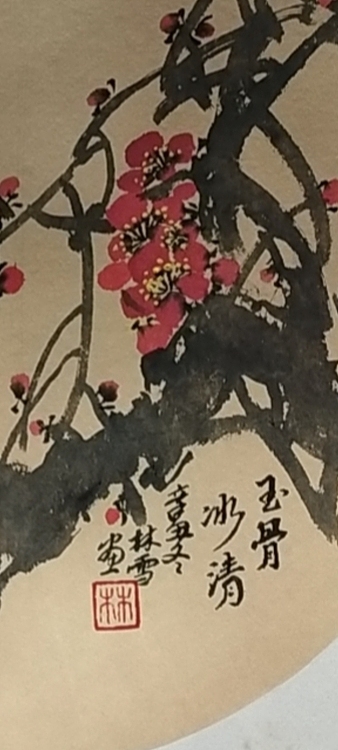 玉骨
冰清
辛丑冬
林雪
画
林